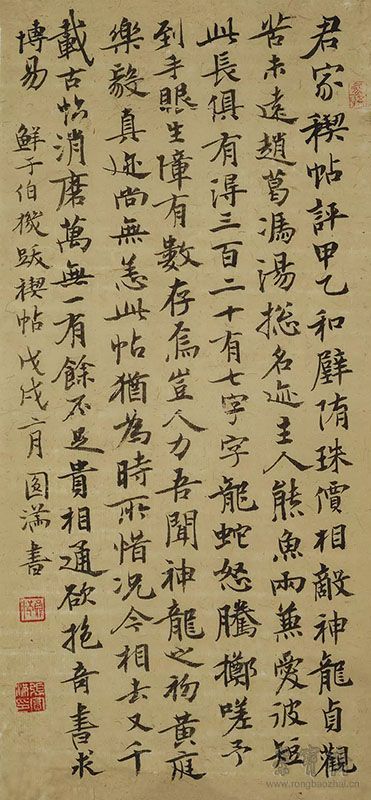 君家禊帖評甲乙和璧隋珠價相敵神龍貞觀
苦未遠趙葛馮湯総名迹主人熊魚兩兼愛彼短
此長俱有得三百二十有七字字龍蛇怒騰擲嗟予
到手眼生障有數存焉豈人力吾聞神龍之初黃庭
樂毅真迹尚無恙此帖猶為時所惜况今相去又千
載古帖消磨萬無一有餘不足貴相通欲抱奇書求
博易 鮮于伯機跋禊帖戊戌六月圓滿書
榮寶齋
www.rongbaozhai.cn